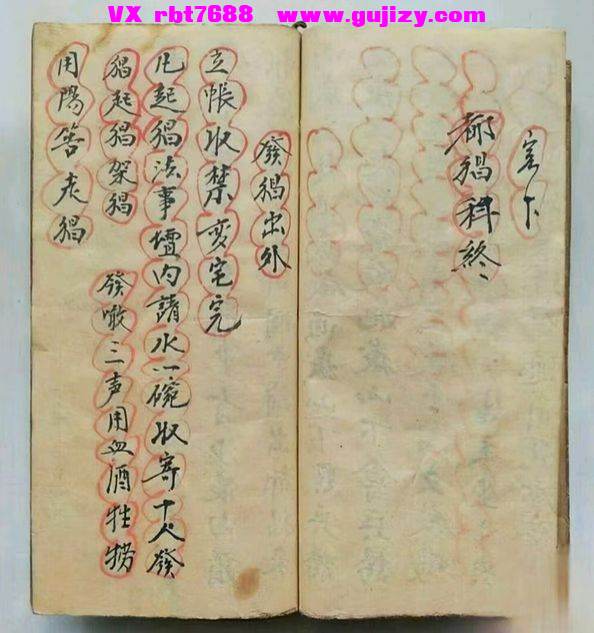 VX rbt7688 www.gujizy.com
完下
都猖科終
發猖出外
立帳収禁变宅完
凡起猖法事壇内請水一碗収寄十人發
猖起猖架猖
發喰三声用血酒牲
用陽筶老猖